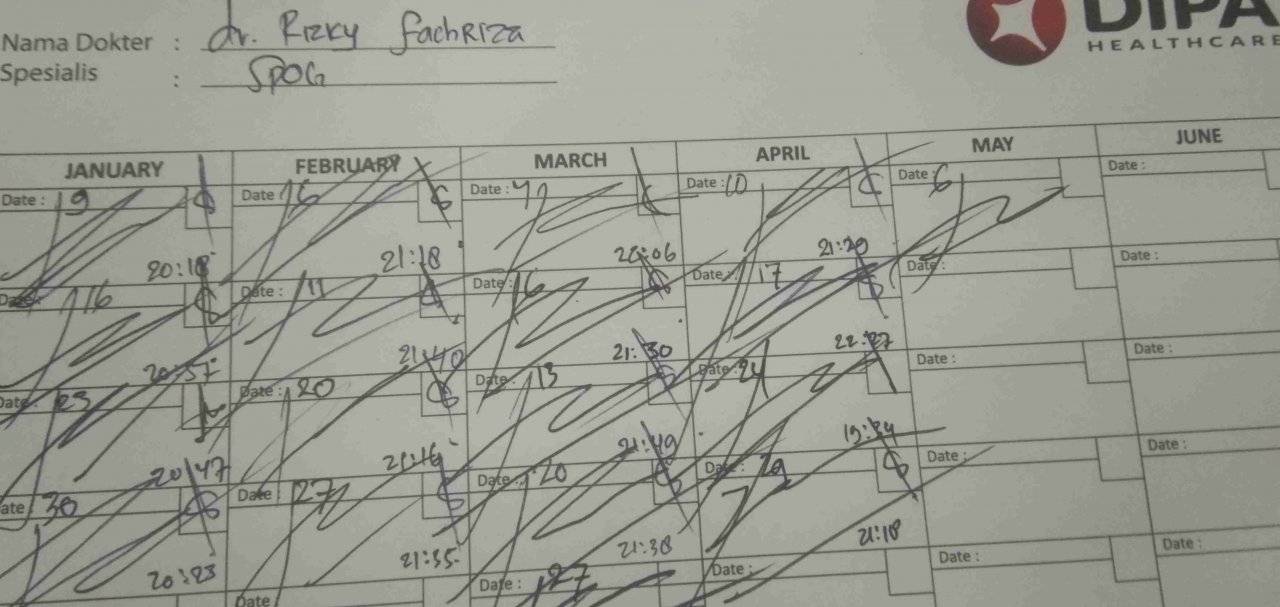 Nama Dokter : dr. Rizky fachriza
Spesialis : SPOG
DIPA
HEALTHCARE
JANUARY FEBRUARY MARCH APRIL MAY JUNE
Date : 9 Date : 6 Date : Date : 10 Date : 6 Date :
20:18 21:18 22:06 21:20
Date : 16 Date : 11 Date : 6 Date : 17 Date : Date :
20:57 21:40 21:30 22:27
Date : 23 Date : 20 Date : 13 Date : 24 Date : Date :
20:47 21:16 21:49 19:34
Date : 30 Date : 27 Date : 20 Date : 29 Date : Date :
20:23 21:35 21:38 21:18
Date : Date : 27 Date : Date : Date :